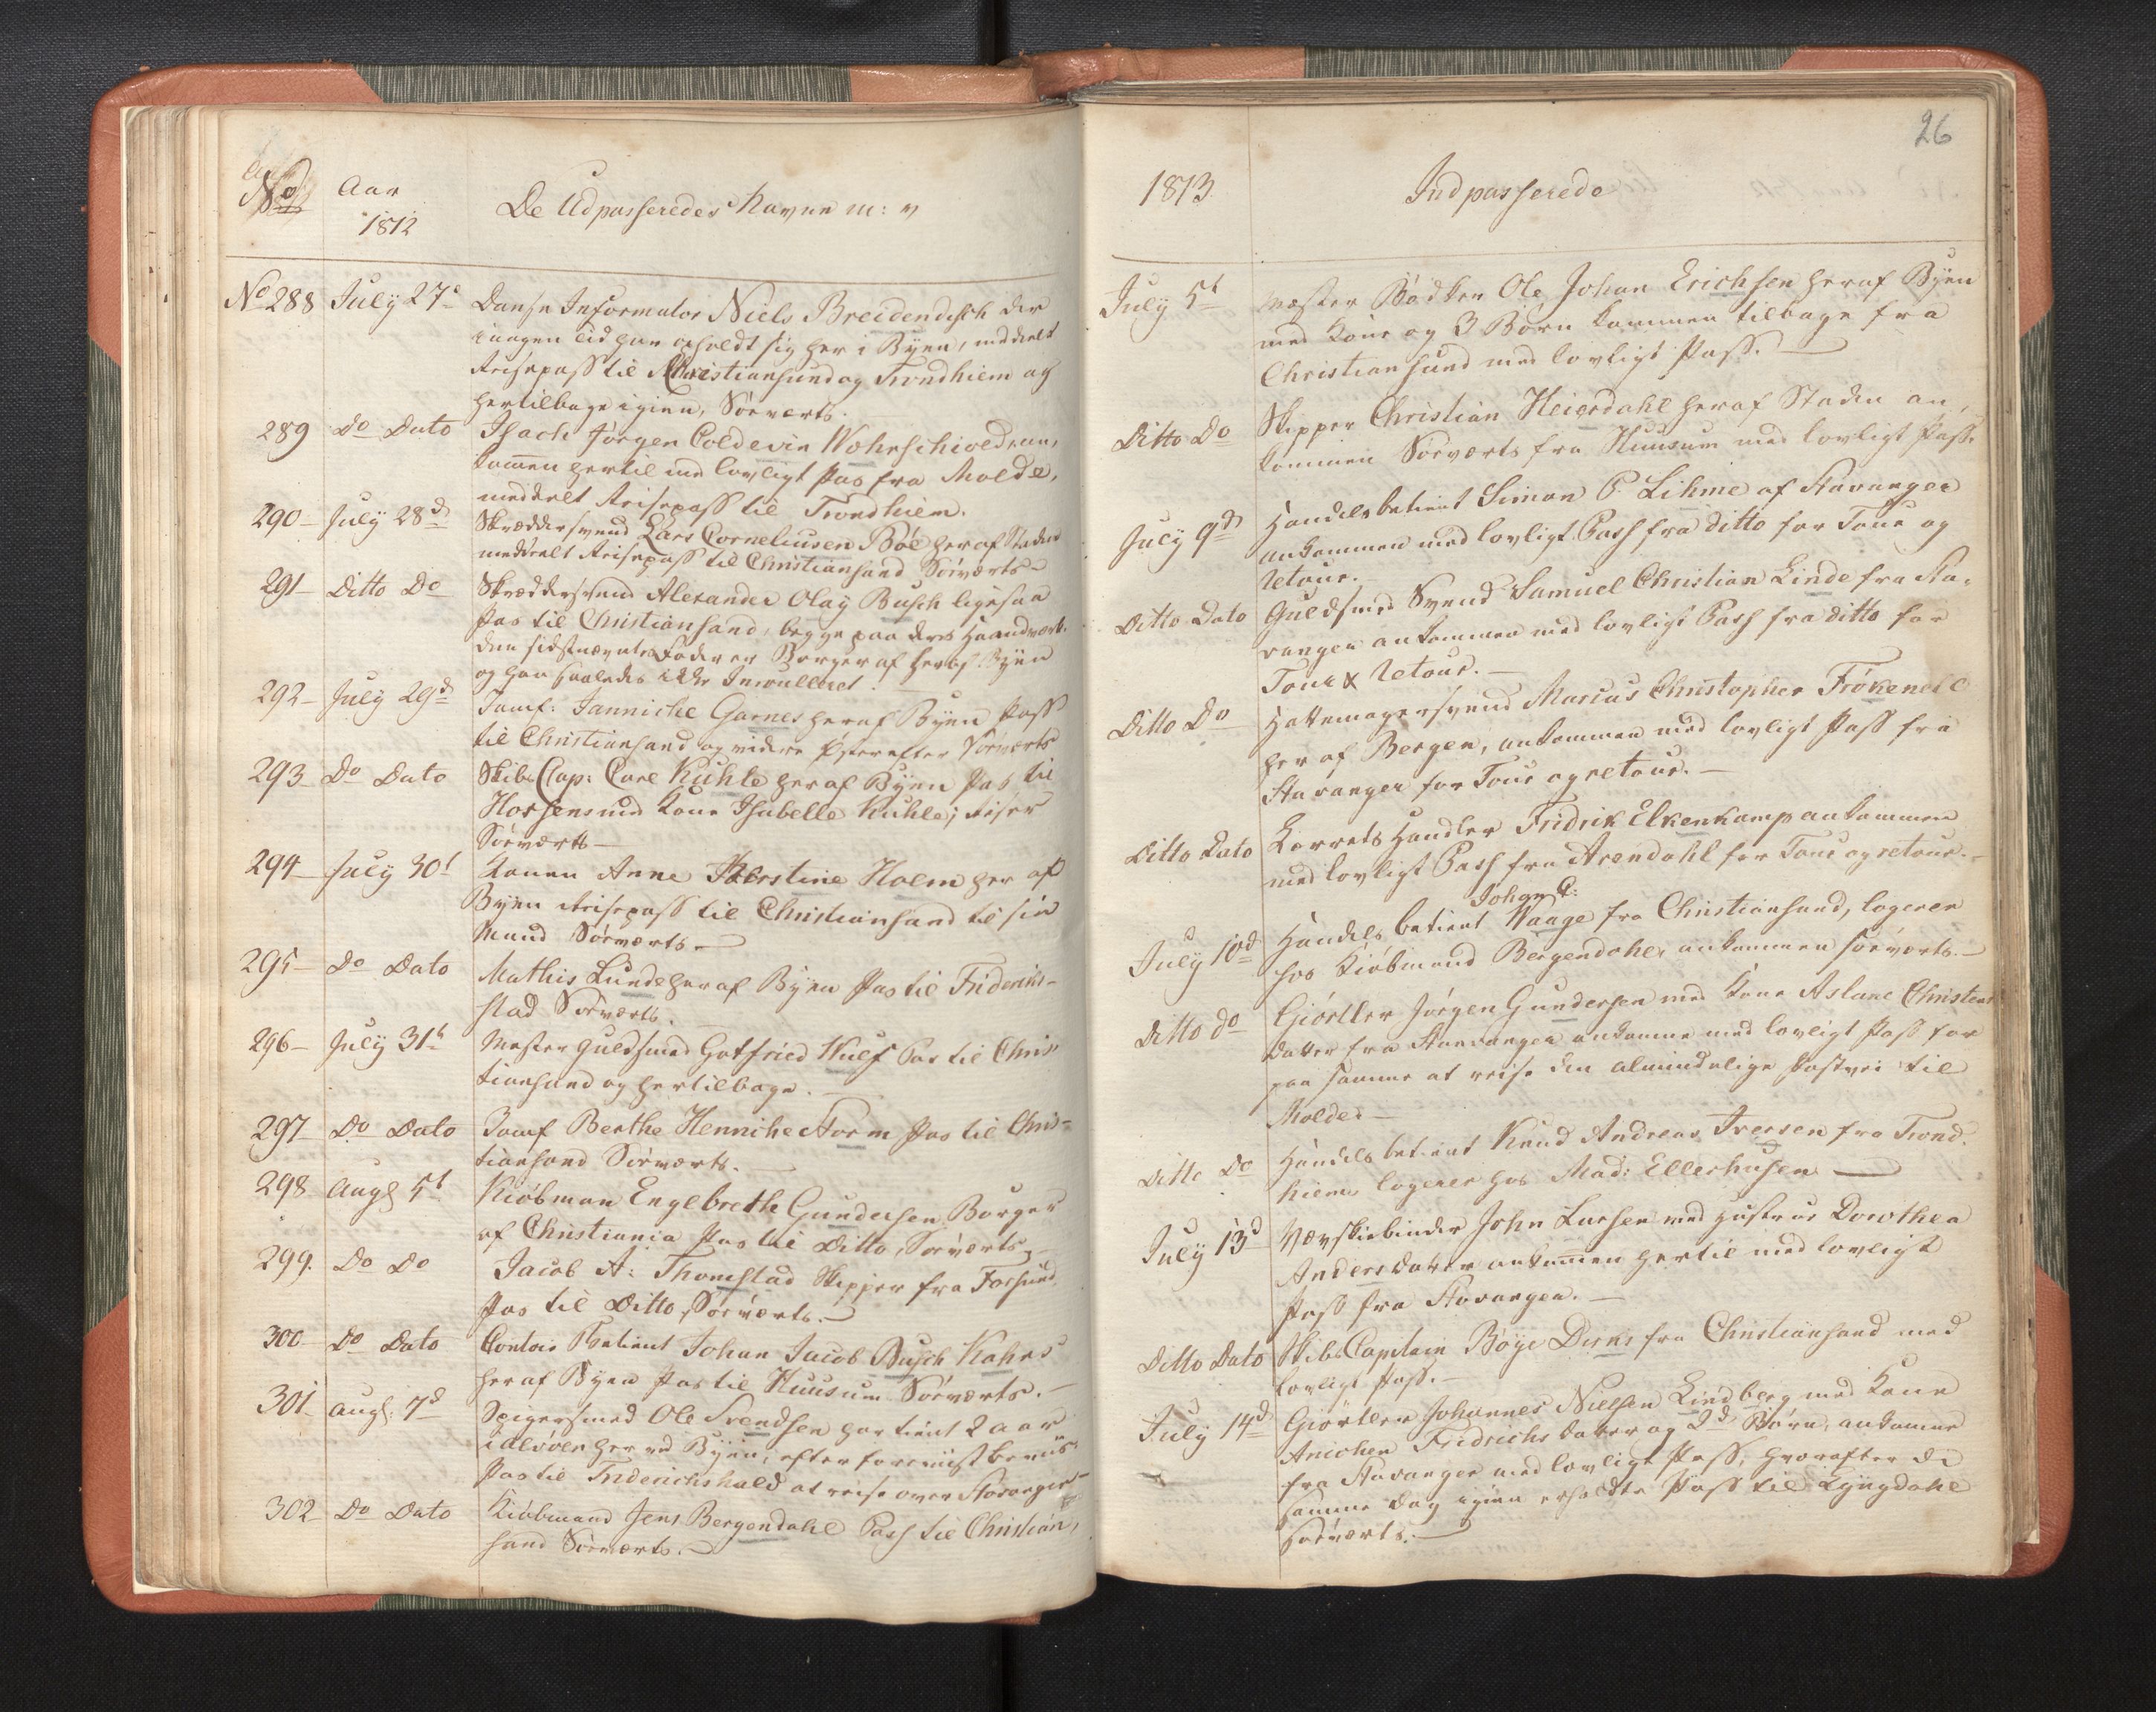 No
Aar
1812
De Udpasseredes Navne m: v
No 288 July 27de Danse Informator Niels Breidendich der
i nogen tid har opholdt sig her i Byen, meddeelt
Reisepass til Christiansund og Trondhiem og
hertilbage igien, Sörverts.
289 Do Dato Isach Jörgen Coldevin Wohnschiold an,
kommen hertil med lovligt Pas fra Molde,
meddeelt Reisepass til Trondhiem.
290 July 28d Skrædersvend Lars Corneliusen Böe her af Staden
meddeelt Reisepass til Christiansand Sörverts
291 Ditto Do Skrædersvend Alexander Olay Busch ligesaa
Pas til Christiansand, begge paa deres Haandverk.
den sidstnævntes Fader er Borger af her af Byen
og han saaledes ikke Inroulleret.
292 July 29d Jomf: Janniche Garnes her af Byen Pass
til Christiansand og videre Österefter Sörverts
293 Do Dato Skibs Cap: Carl Kuhle her af Byen Pas til
Horsens med Kone Isabelle Kuhle, reiser
Sörverts
294 July 30t Konen Anne Kerstine Holm her af
Byen Reisepass til Christiansand til sin
Mand Sörverts
295 Do Dato Mathis Lunde her af Byen Pas til Friderich-
stad Sörverts.
296 July 31t Mester Guldsmed Gotfried Wulf Pas til Chris-
tiansand og hertilbage.
297 Do Dato Jomf Berthe Henniche Storm Pas til Chris-
tiansand Sörverts.
298 Augs 5t Kiöbman Englbreth Gundersen Borger
af Christiania Pas til Ditto, Sörverts
299. Do Do Jacob A: Thomstad Skipper fra Farsund
Pas til Ditto, Sörverts.
300 Do Dato Contoir Betient Johan Jacob Busch Kahrs
her af Byen Pas til Huusum Sörverts.
301 Augs: 7d Spigersmed Ole Svendsen har tient 2 aar
her ved Byen, efter foreviist beviis
Pas til Friderichshald at reise over Stavanger
302 Do Dato Kiöbmand Jens Bergendahl Pass til Christian,
sand Sörverts.
26
1813
Indpasserede
July 5t Mester Bödker Ole Johan Erichsen her af Byen
med Kone og 3 Börn kommen tilbage fra
Christiansund med lovligt Pass.
Ditto Do Skipper Christian Heierdahl her af Staden an,
kommen Sörverts fra Huusum med lovligt Pass.
July 9d Handelsbetient Simon P. Lihme af Stavanger
ankommen med lovligt Pass fra ditto for Tour og
Retour.
Ditto Dato Guldsmed Svend Samuel Christian Linde fra Sta-
vanger ankommen med lovligt Pass fra ditto for
Tour & Retour.
Ditto Do Hattemagersvend Marcus Christopher Frökenell
her af Bergen, ankommen med lovligt Pass fra
Stavanger for Tour og retour.
Ditto Dato Handler Fridrik Elkenkamp ankommen
med lovligt Pass fra Arendahl for Tour og retour.
Johan C:
July 10d Handels betient Waage fra Christiansund, logerer
hos Kiöbmand Bergendahl, ankommen sörverts.
Ditto do Giörtler Jörgen Gundersen med Kone Aslane Christens
datter fra Stavanger ankomne med lovligt Pass for
paa samme at reise den almindelige Postvei til
Molde.
Ditto Do Handels betient Knud Andreas Iversen fra Trond-
hiem, logerer hos Mad: Ellerhusen
July 13d Vævskiebinder John Larsen med Hustrue Dorothea
Andersdatter ankommen hertil med lovligt
Pass fra Stavanger.
Ditto Dato Skibs Captain Böye Dirks fra Christiansand med
lovligt Pass.
July 14d Giörtler Johannes Nielsen Lindberg med Kone
Anichen Fridrichs datter og 2d Börn, ankomne
fra Stavanger med lovligt Pass, hvorefter de
samme Dag igien erholdte Pass til Lyngdahl
Sörverts.